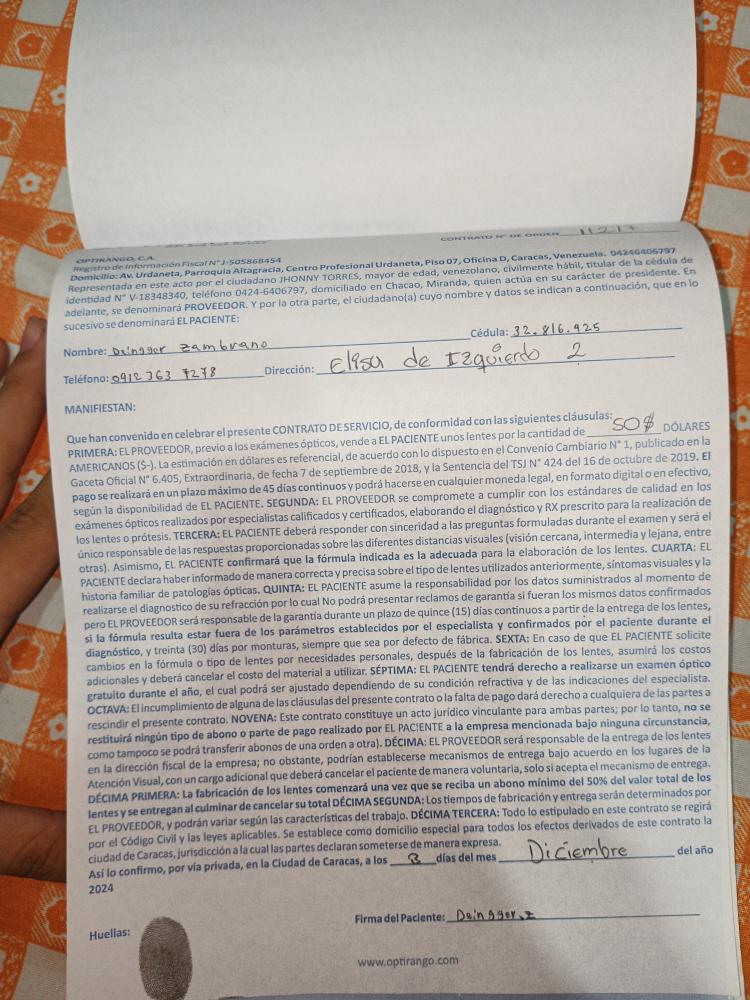 CONTRATO N° DE ORDEN
OPTIRANGO, C.A.
Registro de Información Fiscal N° J-505868454
Domicilio: Av. Urdaneta, Parroquia Altagracia, Centro Profesional Urdaneta, Piso 07, Oficina D, Caracas, Venezuela. 04246406797
Representada en este acto por el ciudadano JHONNY TORRES, mayor de edad, venezolano, civilmente hábil, titular de la cédula de
identidad N° V-18348340, teléfono 0424-6406797, domiciliado en Chacao, Miranda, quien actúa en su carácter de presidente. En
adelante, se denominará PROVEEDOR. Y por la otra parte, el ciudadano(a) cuyo nombre y datos se indican a continuación, que en lo
sucesivo se denominará EL PACIENTE:
Nombre: Deingger Zambrano Cédula: 32.816.925
Teléfono: 0912 363 7278 Dirección: Elisa de Izquierdo 2
MANIFIESTAN:
Que han convenido en celebrar el presente CONTRATO DE SERVICIO, de conformidad con las siguientes cláusulas:
PRIMERA: EL PROVEEDOR, previo a los exámenes ópticos, vende a EL PACIENTE unos lentes por la cantidad de 50$ DÓLARES
AMERICANOS ($-). La estimación en dólares es referencial, de acuerdo con lo dispuesto en el Convenio Cambiario N° 1, publicado en la
Gaceta Oficial N° 6.405, Extraordinaria, de fecha 7 de septiembre de 2018, y la Sentencia del TSJ N° 424 del 16 de octubre de 2019. El
pago se realizará en un plazo máximo de 45 días continuos y podrá hacerse en cualquier moneda legal, en formato digital o en efectivo,
según la disponibilidad de EL PACIENTE. SEGUNDA: EL PROVEEDOR se compromete a cumplir con los estándares de calidad en los
exámenes ópticos realizados por especialistas calificados y certificados, elaborando el diagnóstico y RX prescrito para la realización de
los lentes o prótesis. TERCERA: EL PACIENTE deberá responder con sinceridad a las preguntas formuladas durante el examen y será el
único responsable de las respuestas proporcionadas sobre las diferentes distancias visuales (visión cercana, intermedia y lejana, entre
otras). Asimismo, EL PACIENTE confirmará que la fórmula indicada es la adecuada para la elaboración de los lentes. CUARTA: EL
PACIENTE declara haber informado de manera correcta y precisa sobre el tipo de lentes utilizados anteriormente, síntomas visuales y la
historia familiar de patologías ópticas. QUINTA: EL PACIENTE asume la responsabilidad por los datos suministrados al momento de
realizarse el diagnostico de su refracción por lo cual No podrá presentar reclamos de garantía si fueran los mismos datos confirmados
pero EL PROVEEDOR será responsable de la garantía durante un plazo de quince (15) días continuos a partir de la entrega de los lentes,
si la fórmula resulta estar fuera de los parámetros establecidos por el especialista y confirmados por el paciente durante el
diagnóstico, y treinta (30) días por monturas, siempre que sea por defecto de fábrica. SEXTA: En caso de que EL PACIENTE solicite
cambios en la fórmula o tipo de lentes por necesidades personales, después de la fabricación de los lentes, asumirá los costos
adicionales y deberá cancelar el costo del material a utilizar. SÉPTIMA: EL PACIENTE tendrá derecho a realizarse un examen óptico
gratuito durante el año, el cual podrá ser ajustado dependiendo de su condición refractiva y de las indicaciones del especialista.
OCTAVA: El incumplimiento de alguna de las cláusulas del presente contrato o la falta de pago dará derecho a cualquiera de las partes a
rescindir el presente contrato. NOVENA: Este contrato constituye un acto jurídico vinculante para ambas partes; por lo tanto, no se
restituirá ningún tipo de abono o parte de pago realizado por EL PACIENTE a la empresa mencionada bajo ninguna circunstancia,
como tampoco se podrá transferir abonos de una orden a otra). DÉCIMA: EL PROVEEDOR será responsable de la entrega de los lentes
en la dirección fiscal de la empresa; no obstante, podrían establecerse mecanismos de entrega bajo acuerdo en los lugares de la
Atención Visual, con un cargo adicional que deberá cancelar el paciente de manera voluntaria, solo si acepta el mecanismo de entrega.
DÉCIMA PRIMERA: La fabricación de los lentes comenzará una vez que se reciba un abono mínimo del 50% del valor total de los
lentes y se entregan al culminar de cancelar su total DÉCIMA SEGUNDA: Los tiempos de fabricación y entrega serán determinados por
EL PROVEEDOR, y podrán variar según las características del trabajo. DÉCIMA TERCERA: Todo lo estipulado en este contrato se regirá
por el Código Civil y las leyes aplicables. Se establece como domicilio especial para todos los efectos derivados de este contrato la
ciudad de Caracas, jurisdicción a la cual las partes declaran someterse de manera expresa.
Así lo confirmo, por vía privada, en la Ciudad de Caracas, a los 3 días del mes Diciembre del año
2024
Firma del Paciente: Deingger.z
Huellas:
www.optirango.com